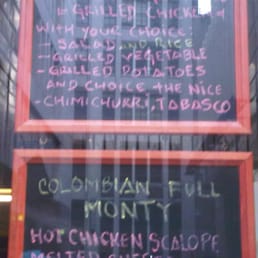 - GRILLED CHICKEN
WITH YOUR CHOICE:
- SALAD AND RICE
- GRILLED VEGETABLE
- GRILLED POTATOES
AND CHOICE THE NICE
- CHIMICHURRI, TABASCO
COLOMBIAN FULL
MONTY
HOT CHICKEN SCALOPE
MELTED